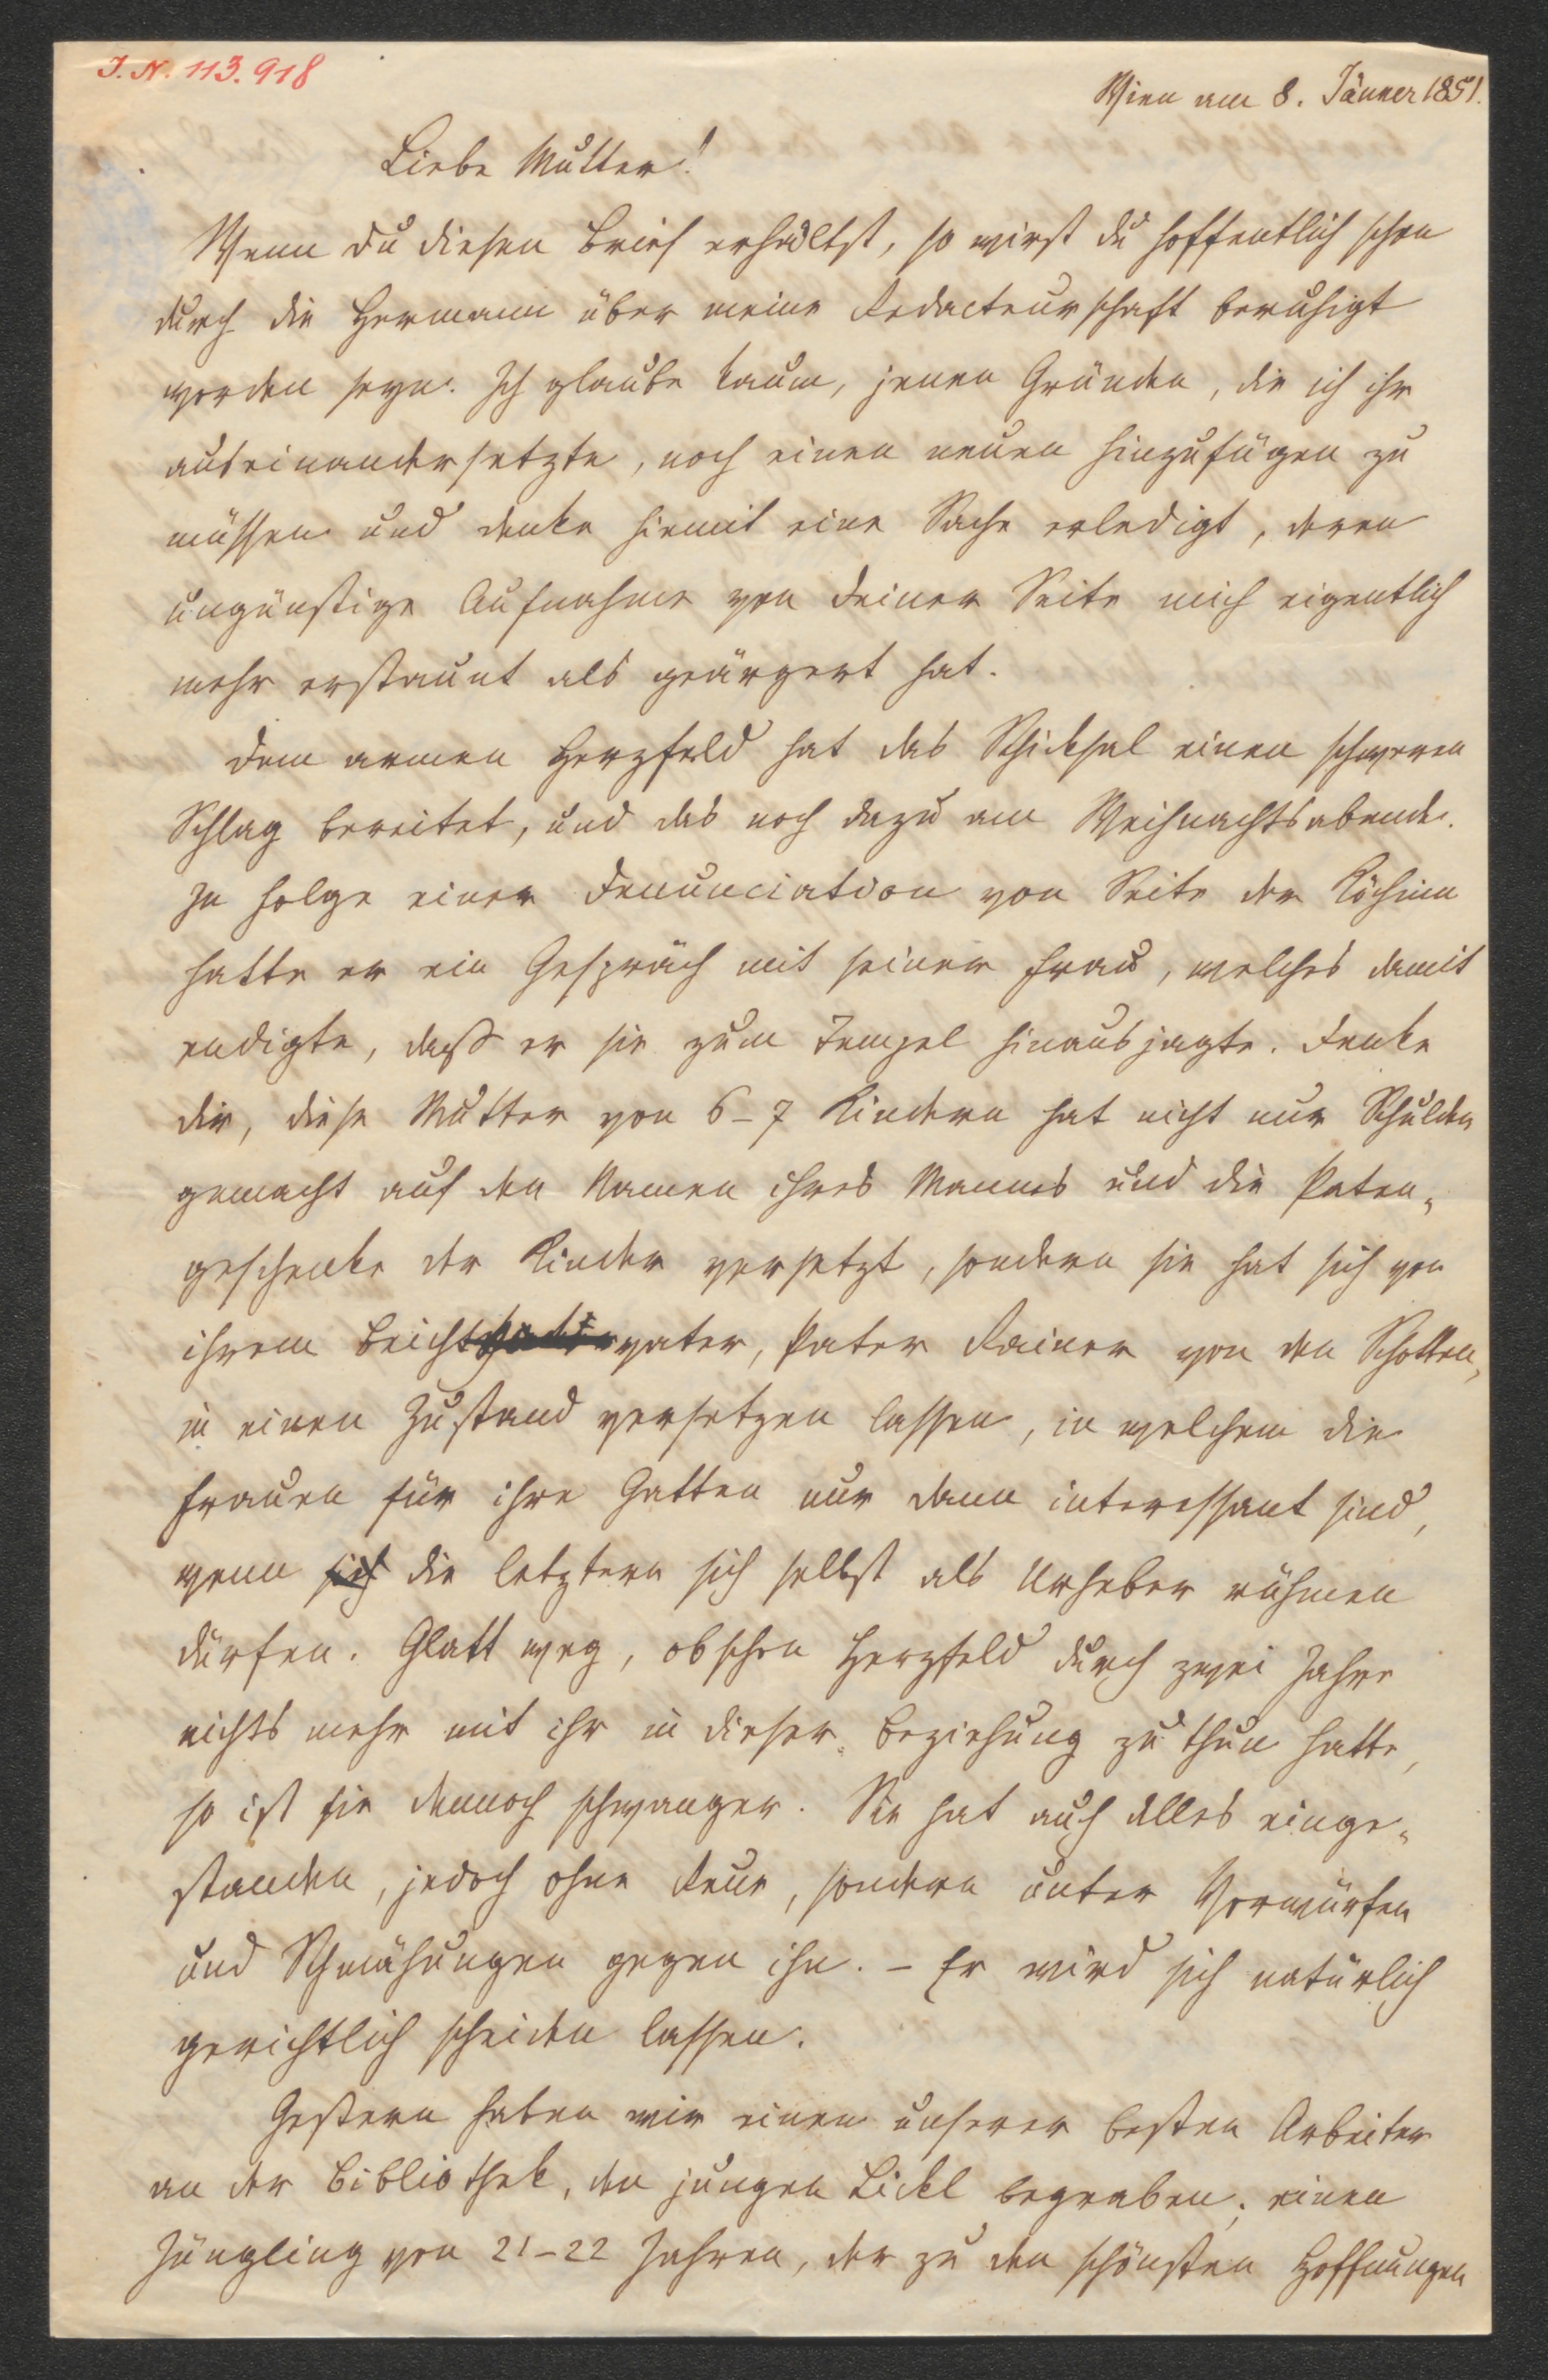 I.N. 113.918
Wien am 8. Jänner 1851.
Liebe Mutter!
Wenn du diesen Brief erhältst, so wirst du hoffentlich schon
durch die Hermann über meine Redacteurschaft beruhigt
worden seyn. Ich glaube kaum, jenen Gründen, die ich ihr
auseinandersetzte, noch einen neuen hinzufügen zu
müssen und denke hiemit eine Sache erledigt, deren
ungünstige Aufnahme von deiner Seite mich eigentlich
mehr erstaunt als geärgert hat.
Dem armen Herzfeld hat das Schicksal einen schweren
Schlag bereitet, und das noch dazu am Weihnachtsabende.
In Folge einer Denunciation von Seite der Köchinn
hatte er ein Gespräch mit seiner Frau, welches damit
endigte, daß er sie zum Tempel hinausjagte. Denke
dir, diese Mutter von 6-7 Kindern hat nicht nur Schulden
gemacht auf den Namen ihres Mannes und die Pathen-
geschenke der Kinder versetzt, sondern sie hat sich von
ihrem Beichtvater, Pater Rainer von den Schotten,
in einen Zustand versetzen lassen, in welchem die
Frauen für ihre Gatten nur dann interessant sind,
wenn sich die letztern sich selbst als Urheber rühmen
dürfen. Glatt weg, obschon Herzfeld durch zwei Jahre
nichts mehr mit ihr in dieser Beziehung zu thun hatte,
so ist sie dennoch schwanger. Sie hat auch alles einge-
standen, jedoch ohne Reue, sondern unter Vorwürfen
und Schmähungen gegen ihn. - Er wird sich natürlich
gerichtlich scheiden lassen.
Gestern haben wir einen unserer besten Arbeiter
an der Bibliothek, den jungen Lickl begraben; einen
Jüngling von 21-22 Jahren, der zu den schönsten Hoffnungen